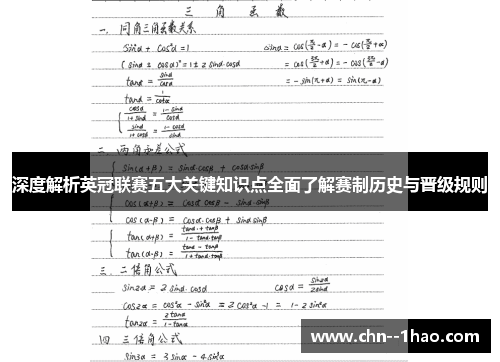 三 角 函 数
一. 同角三角函数关系
sin²α + cos²α = 1
(sinα ± cosα)² = 1 ± 2 sinα·cosα
tanα = sinα/cosα
tanα = 1/cotα
cosα/1+sinα = 1-sinα/cosα
sinα/1+cosα = 1-cosα/sinα
sinα = cos(π/2-α) = -cos(π/2+α)
= cos(3π/2+α) = -cos(3π/2-α)
= -sin(π+α) = sin(π-α)
二. 两角和差公式
sin(α+β) = sinα·cosβ + cosα·sinβ
深度解析英冠联赛五大关键知识点全面了解赛制历史与晋级规则
cos(α+β) = cosα·cosβ - sinα·sinβ
cos(α-β) = cosα·cosβ + sinα·sinβ
tan(α+β) = tanα+tanβ/1-tanα·tanβ
tan(α-β) = tanα-tanβ/1+tanα·tanβ
三. 二倍角公式
sin2α = 2 sinα·cosα
cosα = sin2α/2sinα
cos2α = cos²α - sin²α = 2cos²α - 1 = 1 - 2sin²α
tan2α = 2tanα/1-tan²α
四 三倍角公式
sin3α = 3sinα - 4sin³α
www.chn--1hao.com